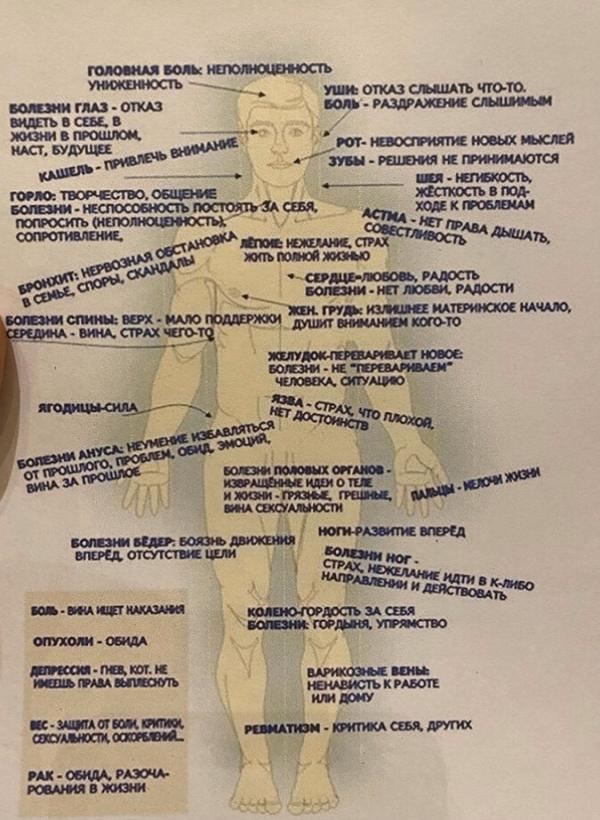 ГОЛОВНАЯ БОЛЬ: НЕПОЛНОЦЕННОСТЬ
УНИЖЕННОСТЬ
УШИ: ОТКАЗ СЛЫШАТЬ ЧТО-ТО.
БОЛЬ - РАЗДРАЖЕНИЕ СЛЫШИМЫМ
БОЛЕЗНИ ГЛАЗ - ОТКАЗ
ВИДЕТЬ В СЕБЕ, В
ЖИЗНИ В ПРОШЛОМ,
НАСТ, БУДУЩЕЕ
РОТ- НЕВОСПРИЯТИЕ НОВЫХ МЫСЛЕЙ
ЗУБЫ - РЕШЕНИЯ НЕ ПРИНИМАЮТСЯ
КАШЕЛЬ - ПРИВЛЕЧЬ ВНИМАНИЕ
ШЕЯ - НЕГИБКОСТЬ,
ЖЁСТКОСТЬ В ПОД-
ХОДЕ К ПРОБЛЕМАМ
ГОРЛО: ТВОРЧЕСТВО, ОБЩЕНИЕ
БОЛЕЗНИ - НЕСПОСОБНОСТЬ ПОСТОЯТЬ ЗА СЕБЯ,
ПОПРОСИТЬ (НЕПОЛНОЦЕННОСТЬ),
СОПРОТИВЛЕНИЕ,
АСТМА - НЕТ ПРАВА ДЫШАТЬ,
СОВЕСТЛИВОСТЬ
ЛЁГКИЕ: НЕЖЕЛАНИЕ, СТРАХ
ЖИТЬ ПОЛНОЙ ЖИЗНЬЮ
БРОНХИТ: НЕРВОЗНАЯ ОБСТАНОВКА
В СЕМЬЕ, СПОРЫ, СКАНДАЛЫ
СЕРДЦЕ=ЛЮБОВЬ, РАДОСТЬ
БОЛЕЗНИ - НЕТ ЛЮБВИ, РАДОСТИ
ЖЕН. ГРУДЬ: ИЗЛИШНЕЕ МАТЕРИНСКОЕ НАЧАЛО,
ДУШИТ ВНИМАНИЕМ КОГО-ТО
БОЛЕЗНИ СПИНЫ: ВЕРХ - МАЛО ПОДДЕРЖКИ
СЕРЕДИНА - ВИНА, СТРАХ ЧЕГО-ТО
ЖЕЛУДОК-ПЕРЕВАРИВАЕТ НОВОЕ:
БОЛЕЗНИ - НЕ "ПЕРЕВАРИВАЕМ"
ЧЕЛОВЕКА, СИТУАЦИЮ
ЯГОДИЦЫ-СИЛА
ЯЗВА - СТРАХ, ЧТО ПЛОХОЙ,
НЕТ ДОСТОИНСТВ
БОЛЕЗНИ АНУСА: НЕУМЕНИЕ ИЗБАВЛЯТЬСЯ
ОТ ПРОШЛОГО, ПРОБЛЕМ, ОБИД, ЭМОЦИЙ,
ВИНА ЗА ПРОШЛОЕ
БОЛЕЗНИ ПОЛОВЫХ ОРГАНОВ -
ИЗВРАЩЁННЫЕ ИДЕИ О ТЕЛЕ
И ЖИЗНИ - ГРЯЗНЫЕ, ГРЕШНЫЕ,
ВИНА СЕКСУАЛЬНОСТИ
ПАЛЬЦЫ - МЕЛОЧИ ЖИЗНИ
НОГИ-РАЗВИТИЕ ВПЕРЁД
БОЛЕЗНИ БЁДЕР: БОЯЗНЬ ДВИЖЕНИЯ
ВПЕРЁД, ОТСУТСТВИЕ ЦЕЛИ
БОЛЕЗНИ НОГ -
СТРАХ, НЕЖЕЛАНИЕ ИДТИ В К-ЛИБО
НАПРАВЛЕНИИ И ДЕЙСТВОВАТЬ
БОЛЬ - ВИНА ИЩЕТ НАКАЗАНИЯ
ОПУХОЛИ - ОБИДА
ДЕПРЕССИЯ - ГНЕВ, КОТ. НЕ
ИМЕЕШЬ ПРАВА ВЫПЛЕСНУТЬ
ВЕС - ЗАЩИТА ОТ БОЛИ, КРИТИКИ,
СЕКСУАЛЬНОСТИ, ОСКОРБЛЕНИЙ...
РАК - ОБИДА, РАЗОЧА-
РОВАНИЯ В ЖИЗНИ
КОЛЕНО-ГОРДОСТЬ ЗА СЕБЯ
БОЛЕЗНИ: ГОРДЫНЯ, УПРЯМСТВО
ВАРИКОЗНЫЕ ВЕНЫ:
НЕНАВИСТЬ К РАБОТЕ
ИЛИ ДОМУ
РЕВМАТИЗМ - КРИТИКА СЕБЯ, ДРУГИХ